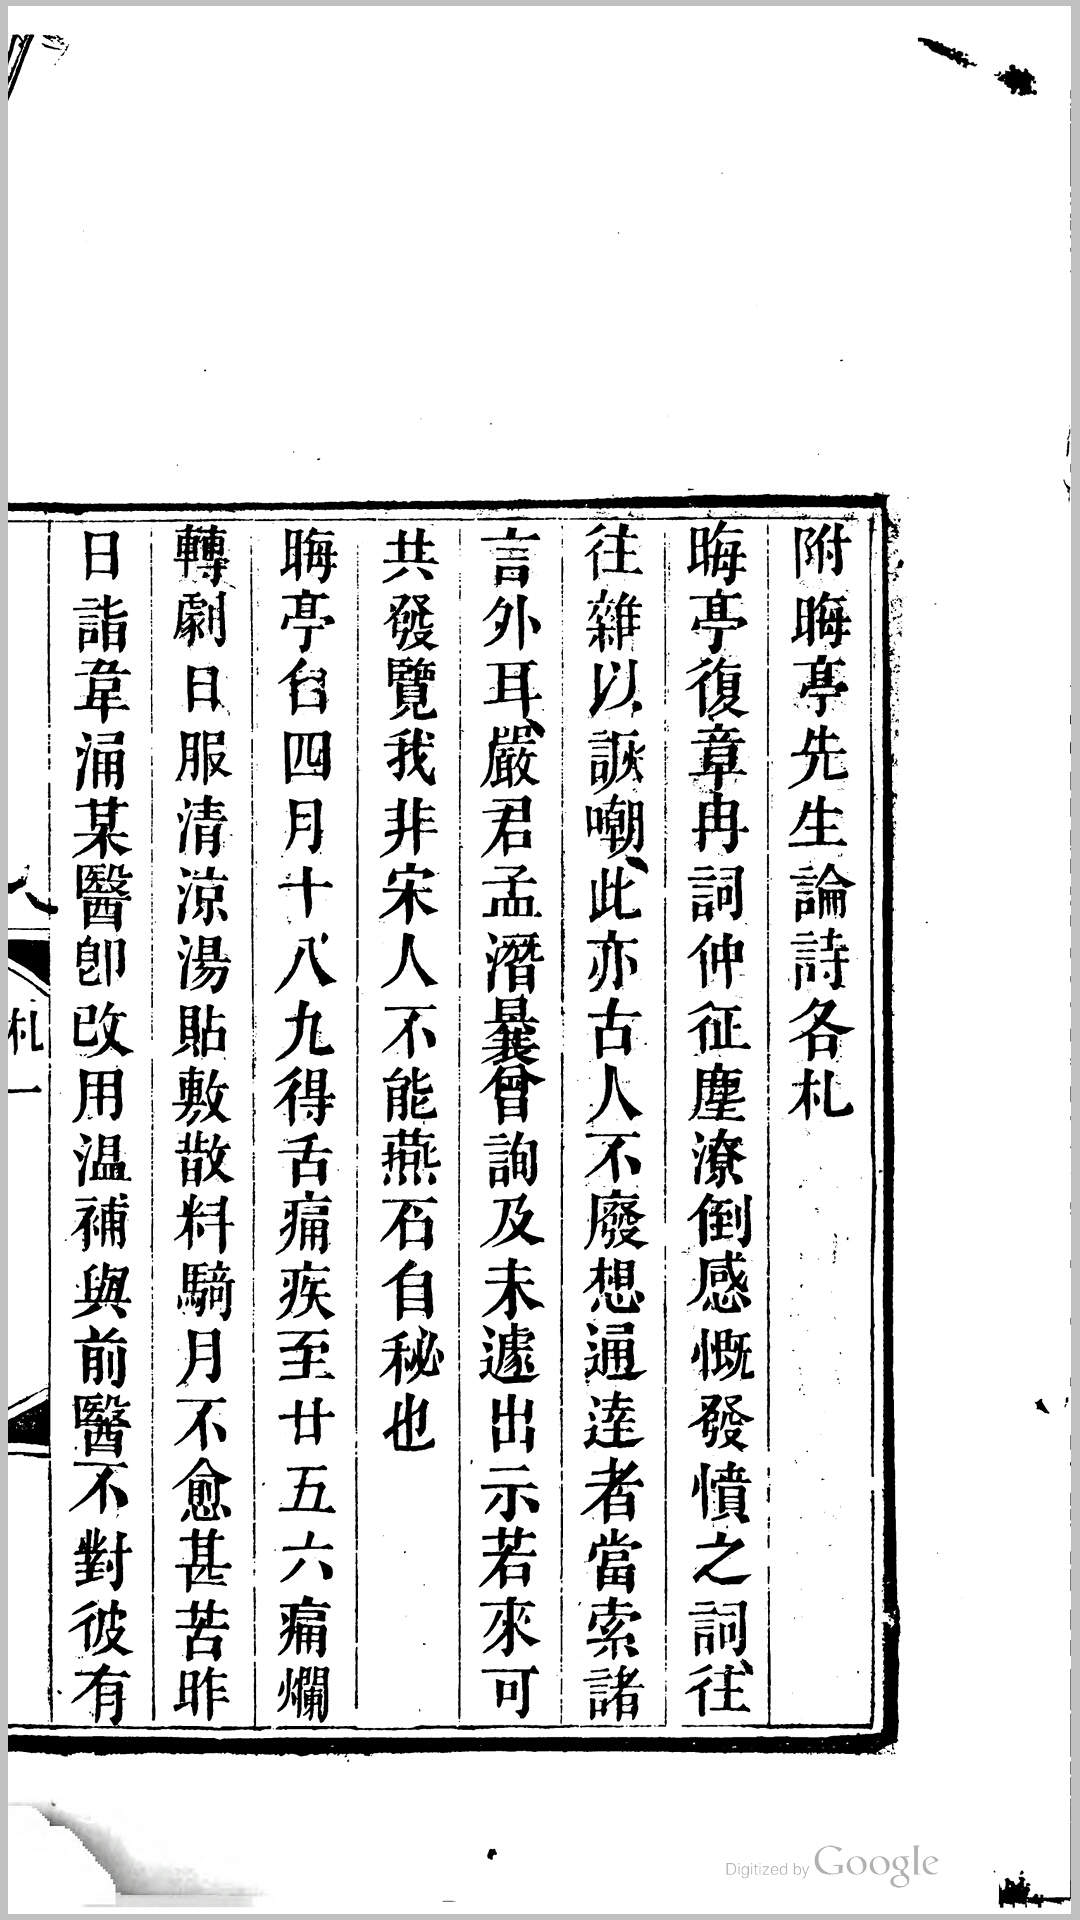 附晦亭先生論詩各札
晦亭復章冉詞仲征塵潦倒感慨發憤之詞往
往雜以詼嘲此亦古人不廢想通達者當索諸
言外耳嚴君孟潛曩曾詢及未遽出示若來可
共發覽我非宋人不能燕石自秘也
晦亭台四月十八九得舌痛疾至廿五六痛爛
轉劇日服清涼湯貼敷散料騎月不愈甚苦昨
日詣韋涌某醫卽改用温補與前醫不對彼有
札一
Digitized by Google